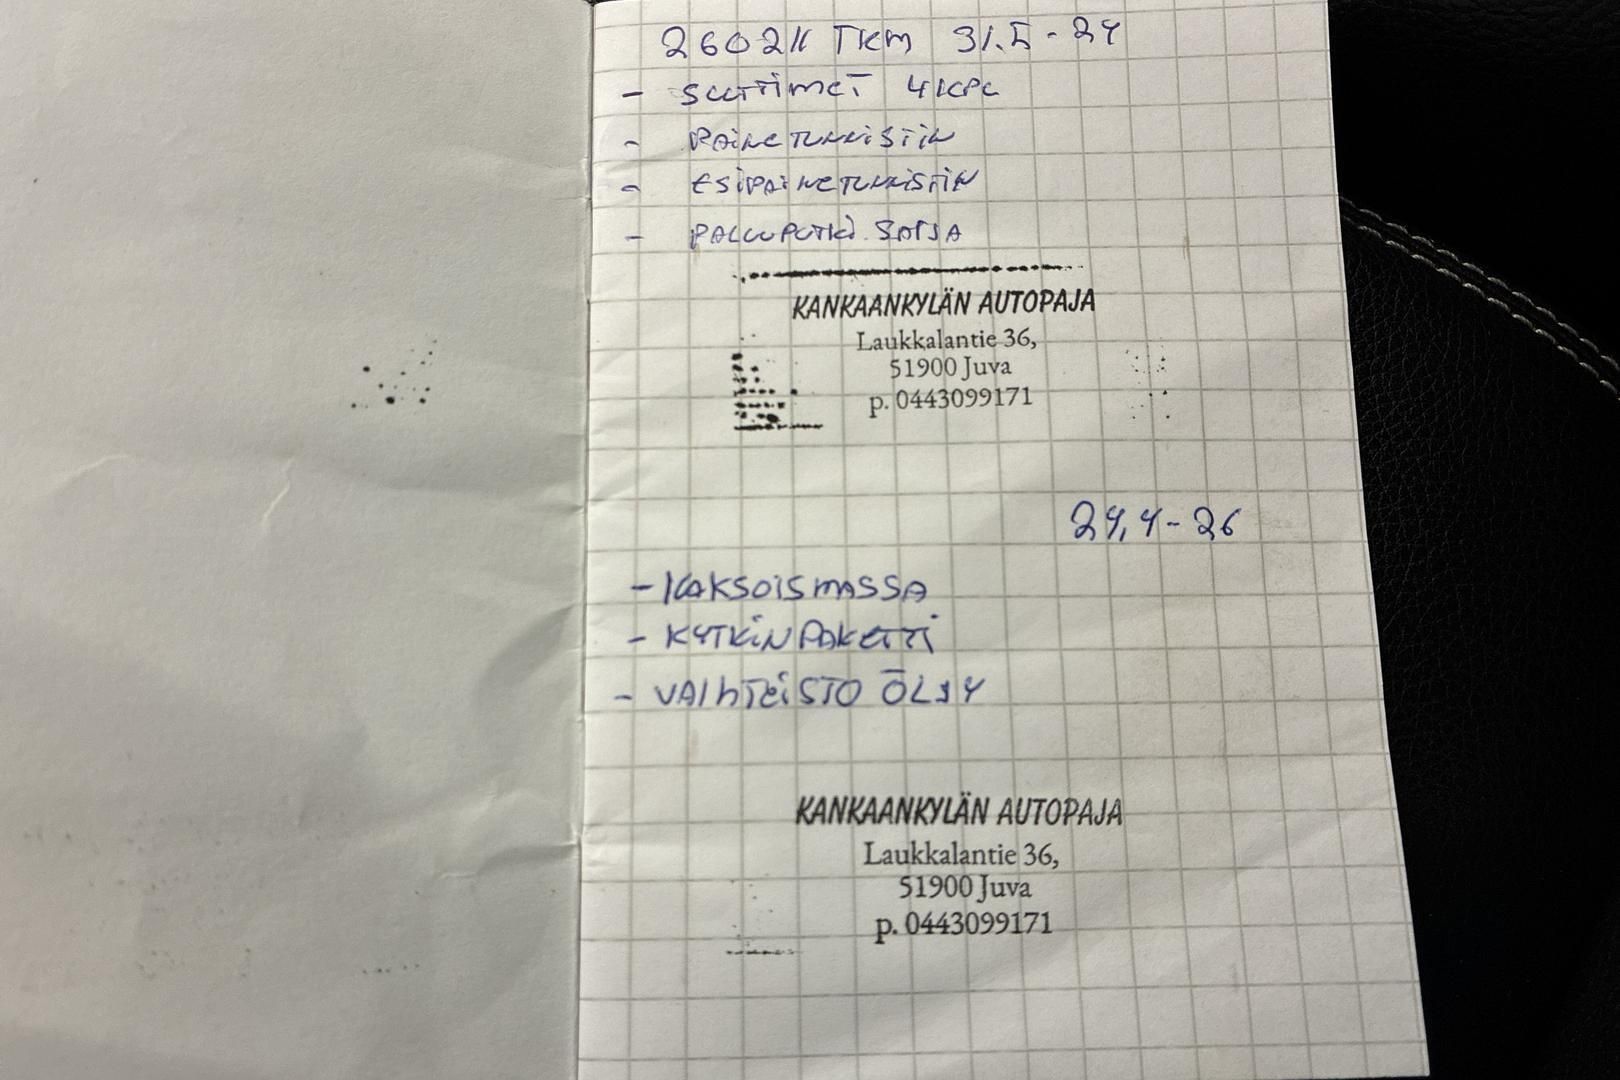 260211 TKM 31.5-24
- SUUTTIMET 4 KPL
- PAINETUNNISTIN
- ESIPAINETUNNISTIN
- PALUUPUTKI SARJA
KANKAANKYLÄN AUTOPAJA
Laukkalantie 36,
51900 Juva
p. 0443099171
24,4-26
- KAKSOISMASSA
- KYTKINPAKETTI
- VAIHTEISTO ÖLJY
KANKAANKYLÄN AUTOPAJA
Laukkalantie 36,
51900 Juva
p. 0443099171